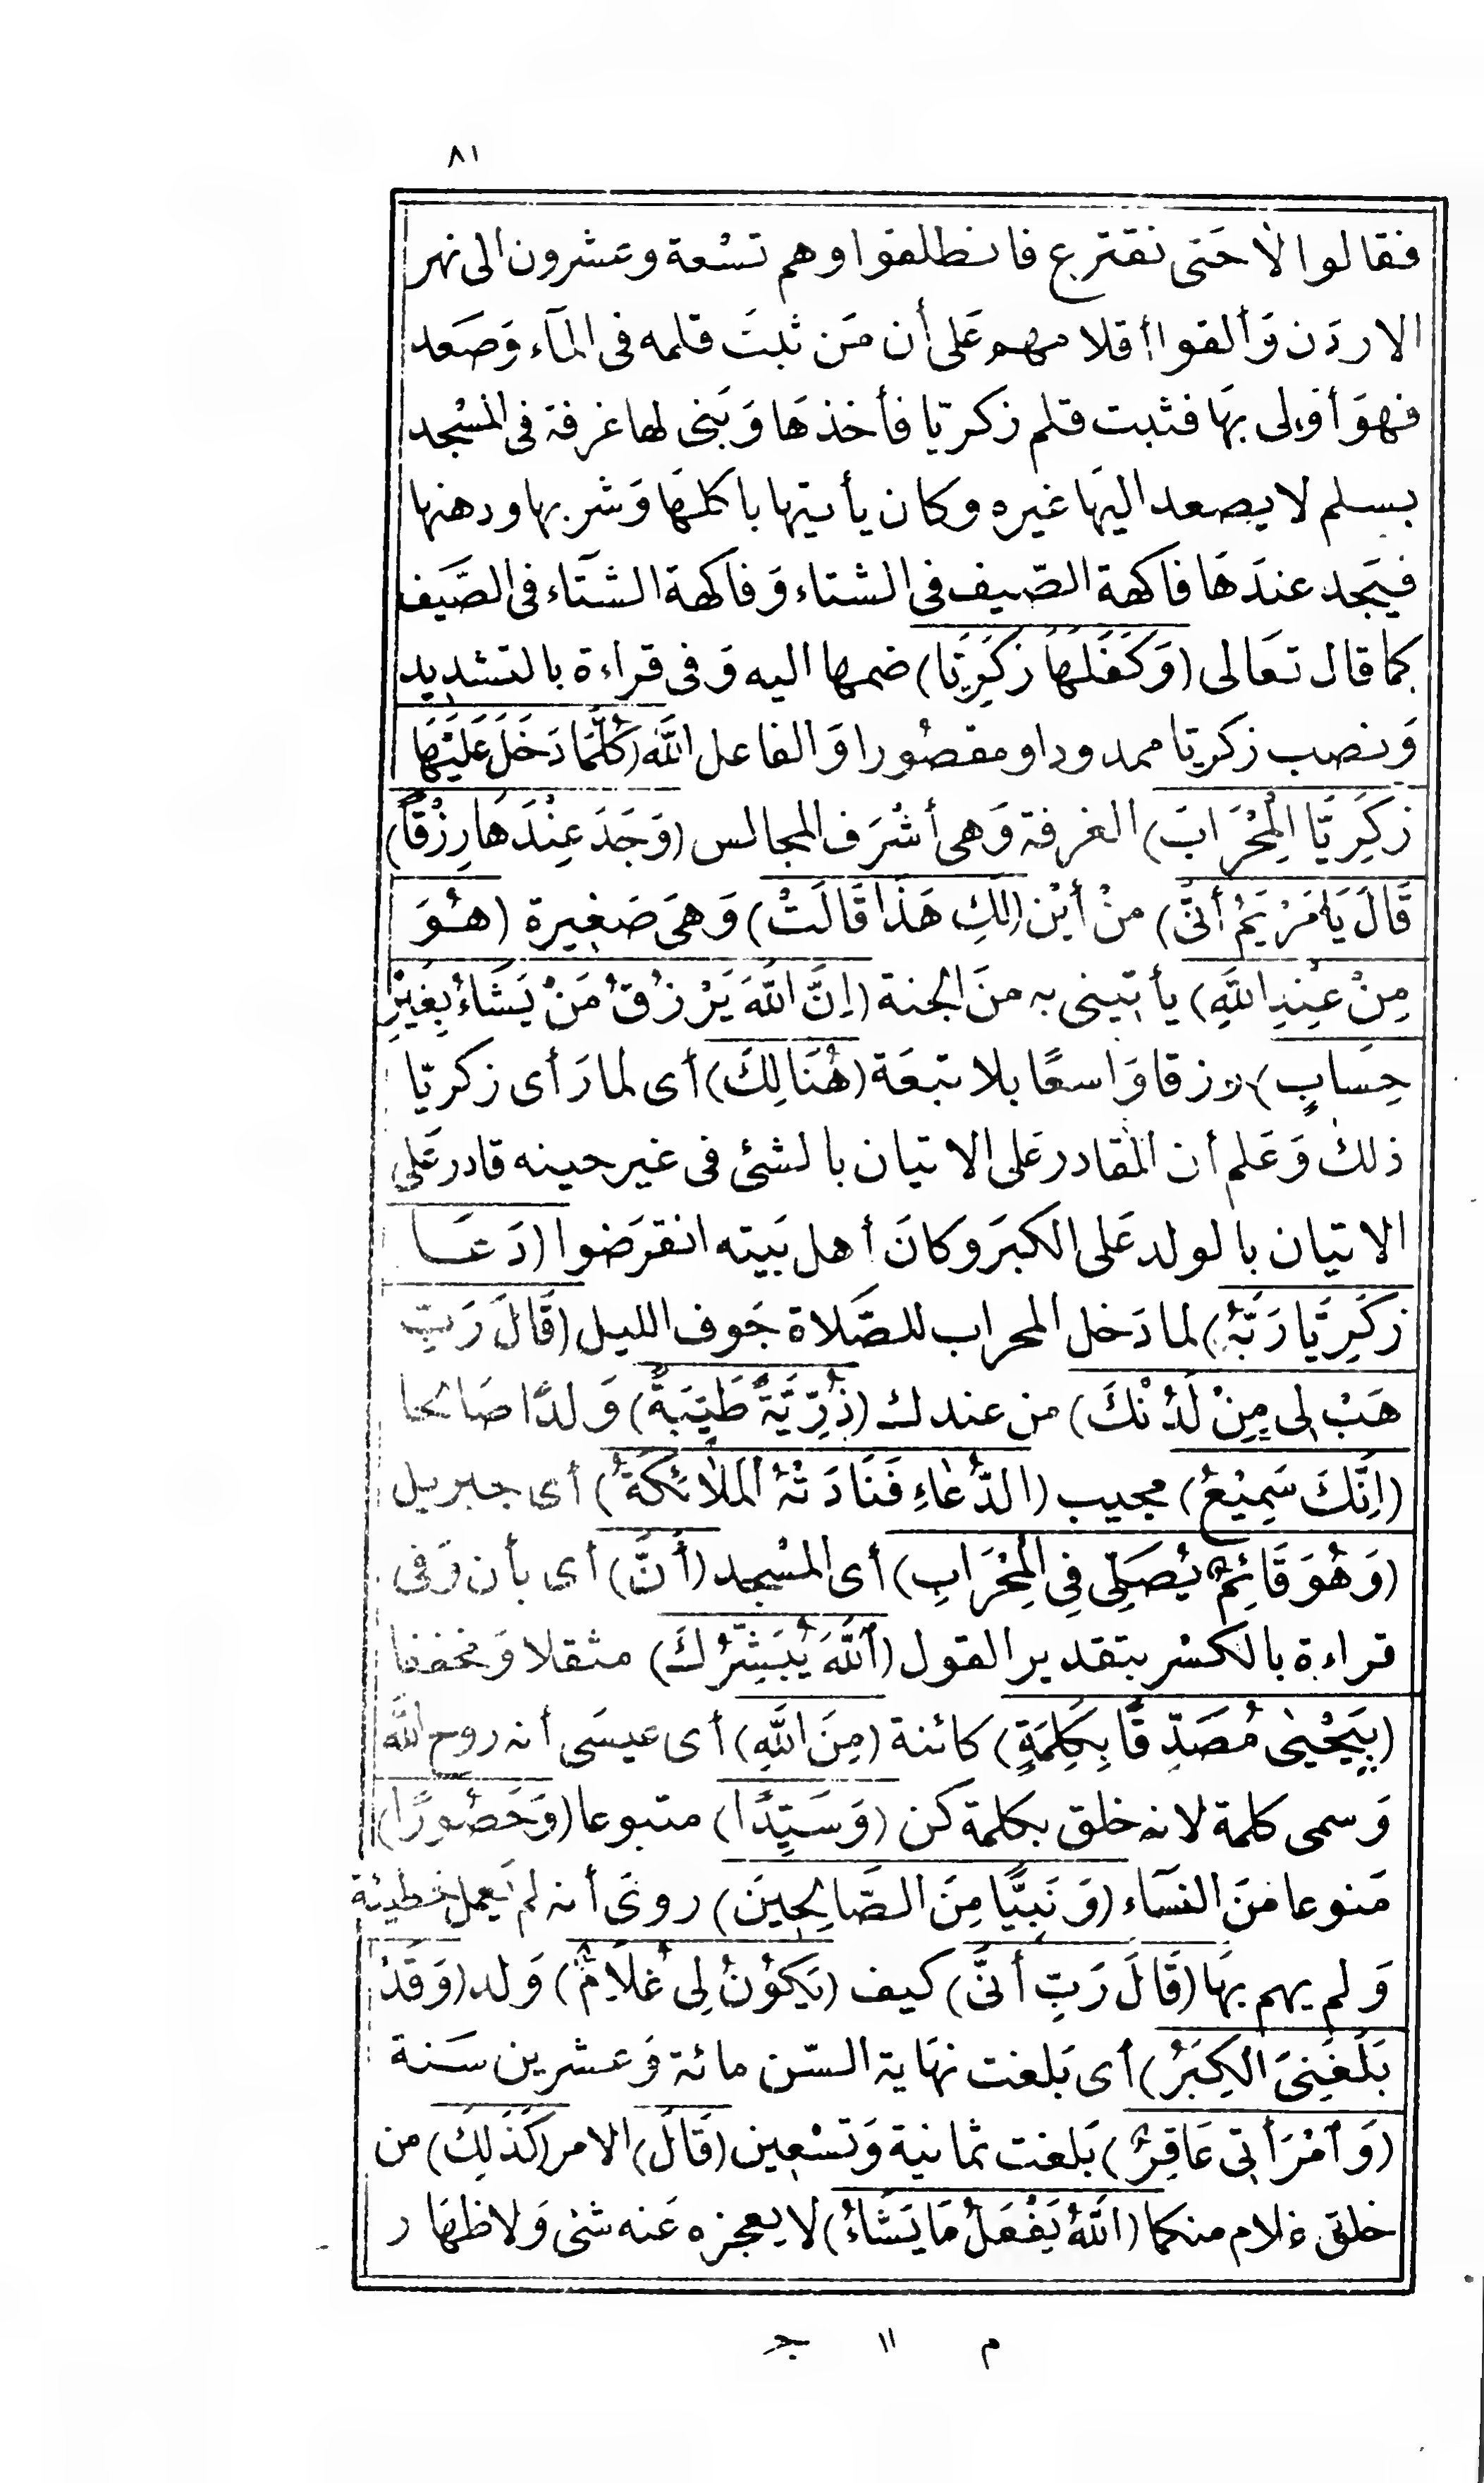 ٨١
فقالوا لا حَتى نقترع فانطلقوا وهم تسْعة وعشرون الى نهر
الاردن وَألقوا أقلامهم عَلى أن مَن ثبتَ قلمه فى المآء وَصَعد
فهوَ أوْلى بهَا فثبت قلم زكريّا فأخذهَا وَبَنى لها غرفة فى المسْجد
بسلم لا يصعد اليهَا غيره وكان يأتيها باكلهَا وَشربها ودهنها
فيَجد عندَهَا فاكهة الصّيف فى الشتاء وَفاكهة الشتآء فى الصَّيف
كما قال تعَالى (وَكَفَلَهَا زَكَرِيَّا) ضمها اليه وَفى قراءة بالتشديد
وَنصب زكريّا ممدودا ومقصُورا وَالفاعل اللَّه (كُلَّمَا دَخَلَ عَلَيْهَا
زَكَرِيَّا الْمِحْرَابَ) الغرفة وَهى أشْرَف المجالس (وَجَدَ عِنْدَهَا رِزْقًا)
قَالَ يَا مَرْيَمُ أَنَّى) منْ أيْن (لَكِ هَذَا قَالَتْ) وَهىَ صَغيرة (هُوَ
مِنْ عِنْدِ اللَّهِ) يأتينى به منَ الجنة (اِنَّ اللَّهَ يَرْزُقُ مَنْ يَشَاءُ بِغَيْرِ
حِسَابٍ) رزقا وَاسعًا بلا تبعَة (هُنَالِكَ) أى لما رَأى زكريّا
ذلك وَعَلم أن القادر عَلى الاتيان بالشئ فى غير حينه قادر عَلى
الاتيان بالولد عَلى الكبَر وكانَ أهل بَيته انقرَضوا (دَعَا
زَكَرِيَّا رَبَّهُ) لما دَخل المحراب للصَّلاة جَوف الليل (قَالَ رَبِّ
هَبْ لِى مِنْ لَدُنْكَ) من عندك (ذُرِّيَّةً طَيِّبَةً) وَلدًا صَالحا
(اِنَّكَ سَمِيْعُ) مجيب (الدُّعَاءِ فَنَادَتْهُ الْمَلَائكَةُ) أى جبريل
(وَهُوَ قَائِمٌ يُصَلِّى فِى الْمِحْرَابِ) أى المسْجد (أَنَّ) أى بأن وَفى
قراءة بالكسْر بتقدير القول (اللَّهَ يُبَشِّرُكَ) مثقلا وَمخففا
(بِيَحْيٰى مُصَدِّقًا بِكَلِمَةٍ) كائنة (مِنَ اللَّهِ) أى عيسَى أنه روح اللَّه
وَسمى كلمة لانه خلق بكلمة كن (وَسَيِّدًا) متبوعا (وَحَصُورًا)
مَنوعا منَ النسَآء (وَنَبِيًّا مِنَ الصَّالِحِينَ) روىَ أنه لم يَعمل خطيئة
وَلم يهم بهَا (قَالَ رَبِّ أَنَّى) كيف (يَكُوْنُ لِى غُلاَمٌ) وَلد (وَقَدْ
بَلَغَنِىَ الْكِبَرُ) أى بَلغت نهَاية السّن مائة وَعشرين سَنة
(وَامْرَأَتِى عَاقِرٌ) بَلغت ثمانية وَتسْعين (قَالَ) الامر (كَذَلِكَ) من
خلق غلام منكما (اللَّهُ يَفْعَلُ مَا يَشَاءُ) لا يعجزه عَنه شئ وَلاظهَار
م ١١ جـ